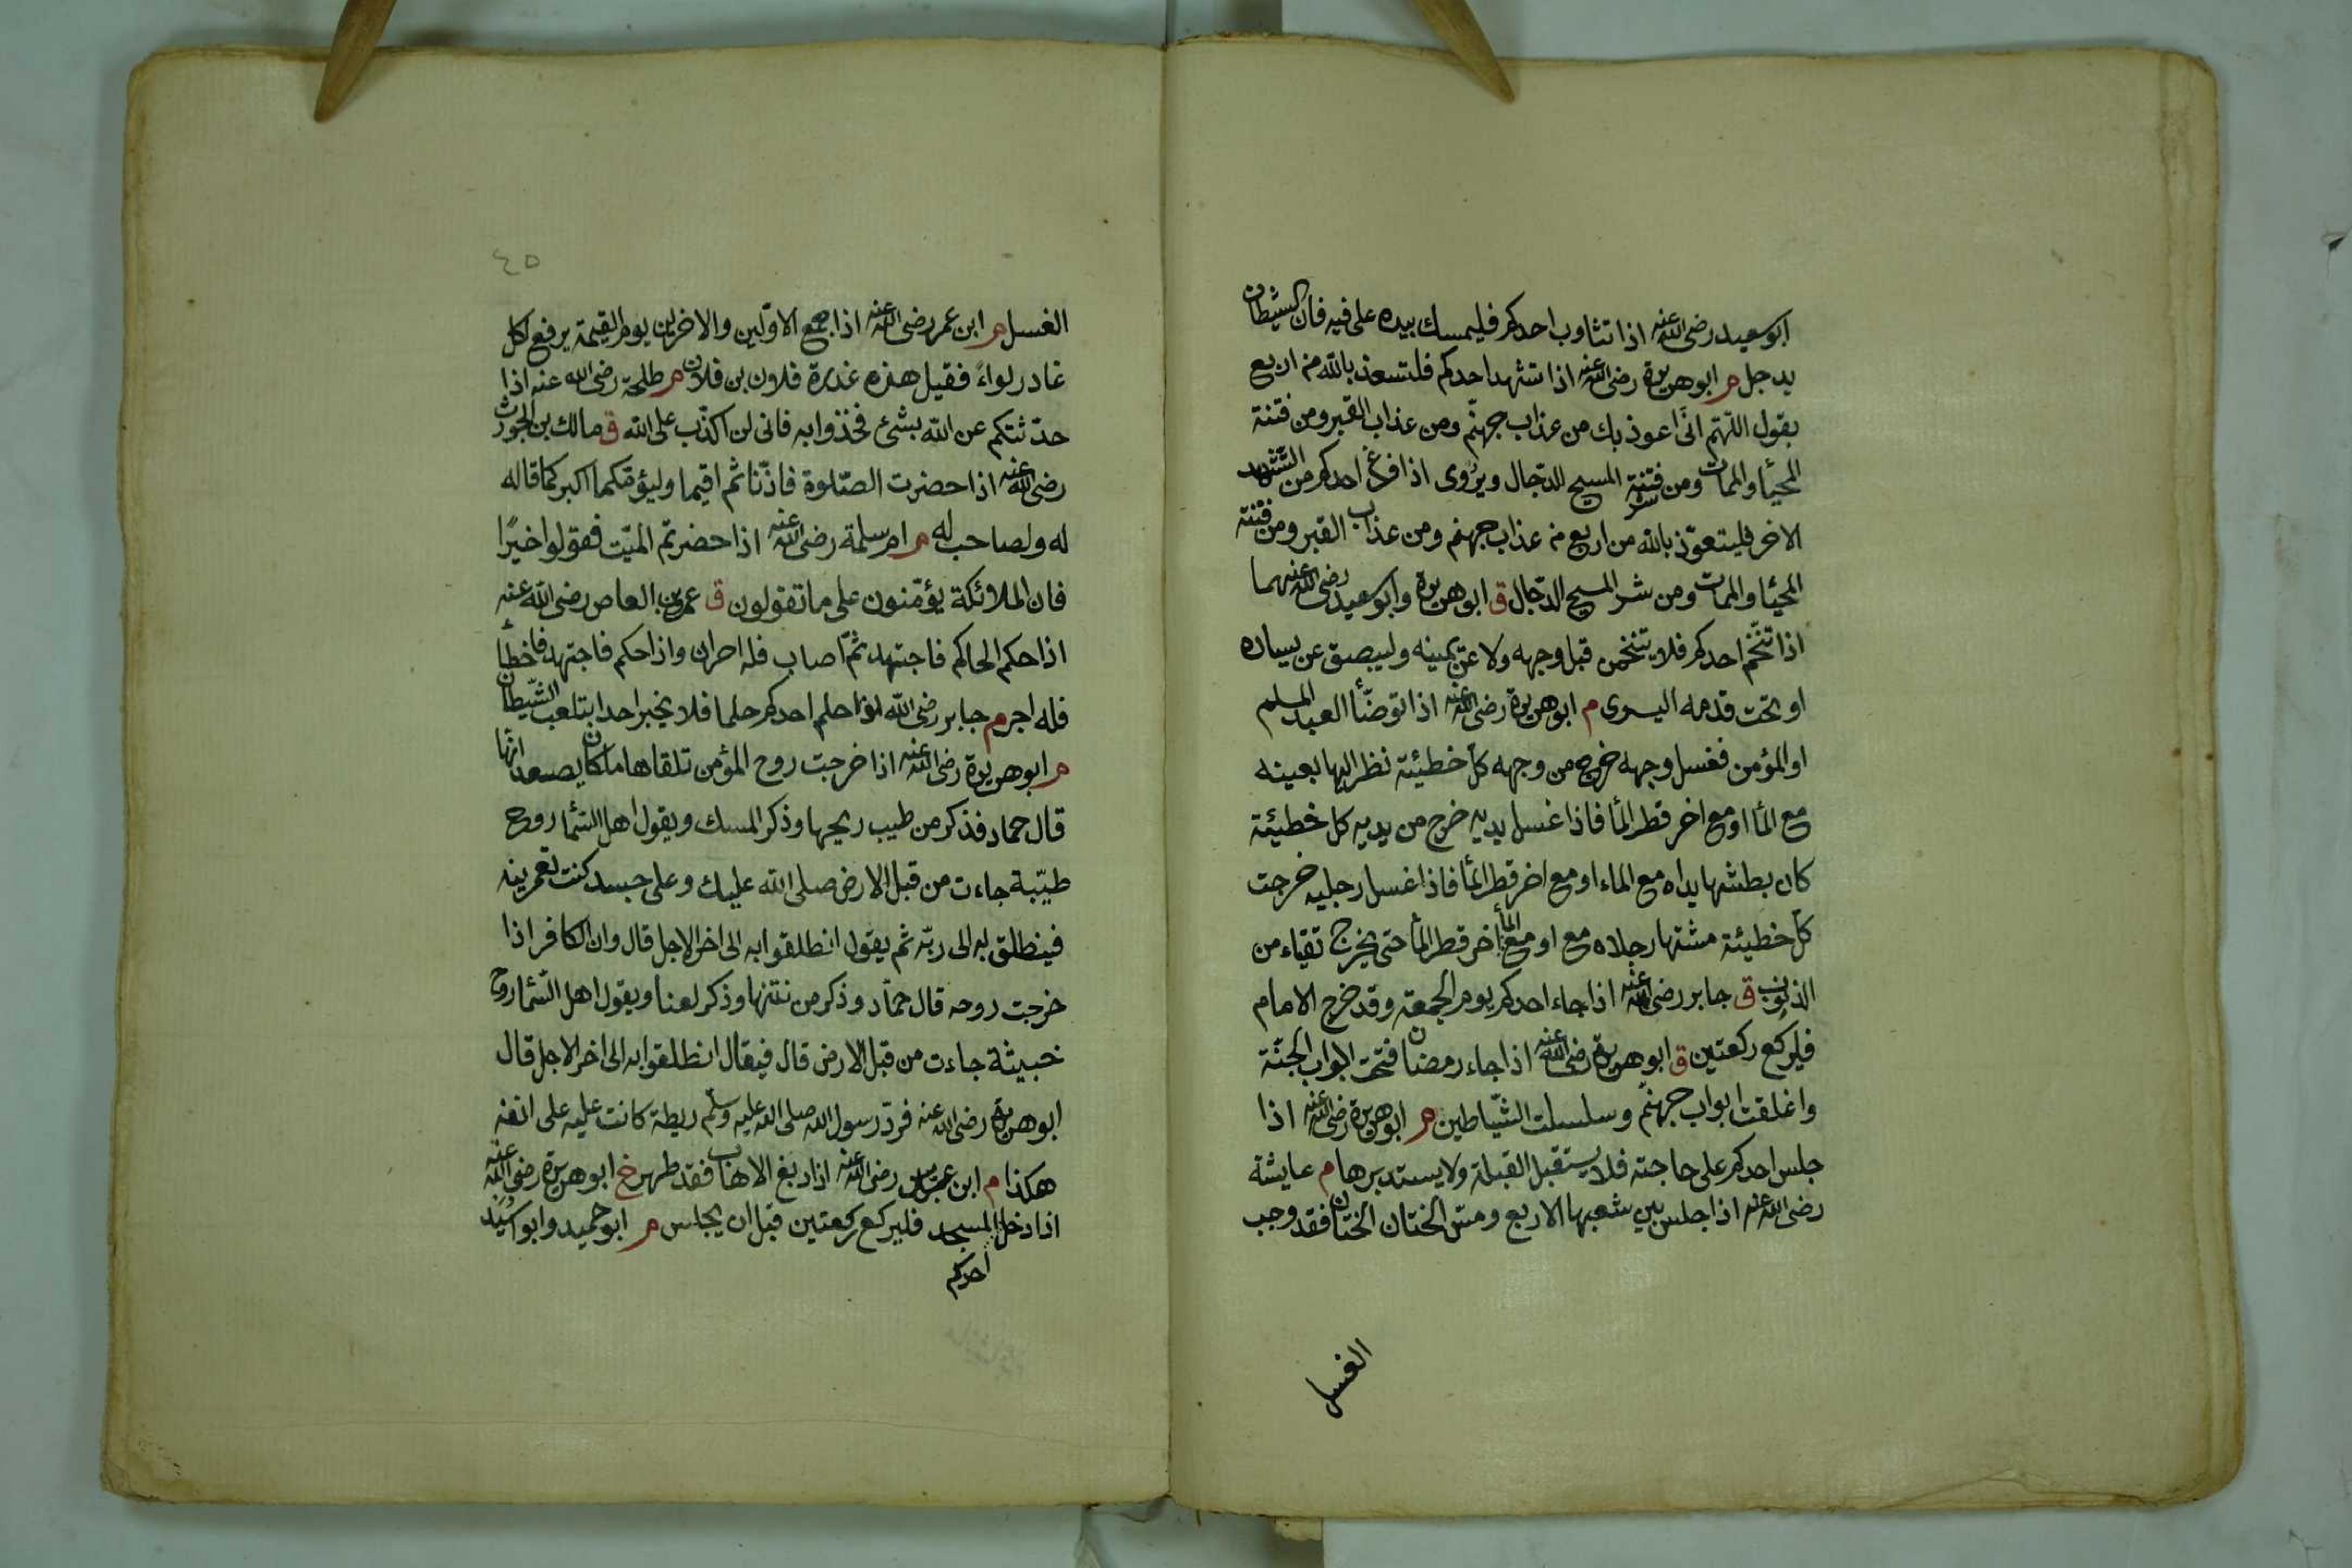 ابوسعيد رضى الله عنه اذا تثاوب احدكم فليمسك بيده على فيه فان الشيطان
يدخل م ابوهريرة رضى الله عنه اذا تشهد احدكم فلتسعذ بالله من اربع
يقول اللهم انى اعوذ بك من عذاب جهنم ومن عذاب القبر ومن فتنة
المحيا والممات ومن فتنة المسيح الدجال ويروى اذا فرغ احدكم من التشهد
شر
الاخر فليتعوذ بالله من اربع من عذاب جهنم ومن عذاب القبر ومن فتنة
المحيا والممات ومن شر المسيح الدجال ق ابوهريرة وابوسعيد رضى الله عنهما
اذا تنخم احدكم فلا يتنخمن قبل وجهه ولا عن يمينه وليبصق عن يساره
او تحت قدمه اليسرى م ابوهريرة رضى الله عنه اذا توضأ العبد المسلم
او المؤمن فغسل وجهه خرج من وجهه كل خطيئة نظر اليها بعينه
مع المأ او مع اخر قطر المأ فاذا غسل يديه خرج من يديه كل خطيئة
كان بطشها يداه مع الماء او مع اخر قطر المأ فاذا غسل رجليه خرجت
كل خطيئة مشتها رجلاه مع المأ او مع اخر قطر المأ حتى يخرج نقياء من
الذنوب ق جابر رضى الله عنه اذا جاء احدكم يوم الجمعة وقد خرج الامام
فليركع ركعتين ق ابوهريرة رضى الله عنه اذا جاء رمضان فتحت ابواب الجنة
واغلقت ابواب جهنم وسلسلت الشياطين م ابوهريرة رضى الله عنه اذا
جلس احدكم على حاجته فلا يستقبل القبلة ولا يستدبرها م عايشة
رضى الله عنه اذا جلس بين شعبها الاربع ومس الختان الختان فقد وجب
الغسل
٤٥
الغسل م ابن عمر رضى الله عنه اذا جمع الاولين والاخرين يوم القيمة يرفع لكل
غادر لواءً فقيل هذه غدرة فلان بن فلان م طلحة رضى الله عنه اذا
حدثتكم عن الله بشئ فخذوا به فانى لن اكذب على الله ق مالك بن الحويرث
رضى الله عنه اذا حضرت الصلوة فاذنا ثم اقيما وليؤمكما اكبركما قاله
له ولصاحب له م ام سلمة رضى الله عنه اذا حضرتم الميت فقولوا خيرًا
فان الملائكة يؤمنون على ما تقولون ق عمرو بن العاص رضى الله عنه
اذا حكم الحاكم فاجتهد ثم اصاب فله اجران واذا حكم فاجتهد فاخطأ
فله اجر م جابر رضى الله اذا حلم احدكم حلما فلا يخبر احدا بتلعب الشيطان
م ابوهريرة رضى الله عنه اذا خرجت روح المؤمن تلقاها ملكان يصعدانها
قال حماد فذكر من طيب ريحها وذكر المسك ويقول اهل السما روح
طيبة جاءت من قبل الارض صلى الله عليك وعلى جسد كنت تعمرينه
فينطلق به الى ربه ثم يقول انطلقوا به الى اخر الاجل قال وان الكافر اذا
خرجت روحه قال حماد وذكر من نتنها وذكر لعنا ويقول اهل السما روح
خبيثة جاءت من قبل الارض قال فيقال انطلقوا به الى اخر الاجل قال
ابوهريرة رضى الله عنه فرد رسول الله صلى الله عليه وسلم ريطة كانت عليه على انفه
هكذا م ابن عباس رضى الله عنه اذا دبغ الاهاب فقد طهر خ ابوهريرة رضى الله عنه
اذا دخل المسجد فليركع ركعتين قبل ان يجلس م ابوحميد وابواسيد
احدكم